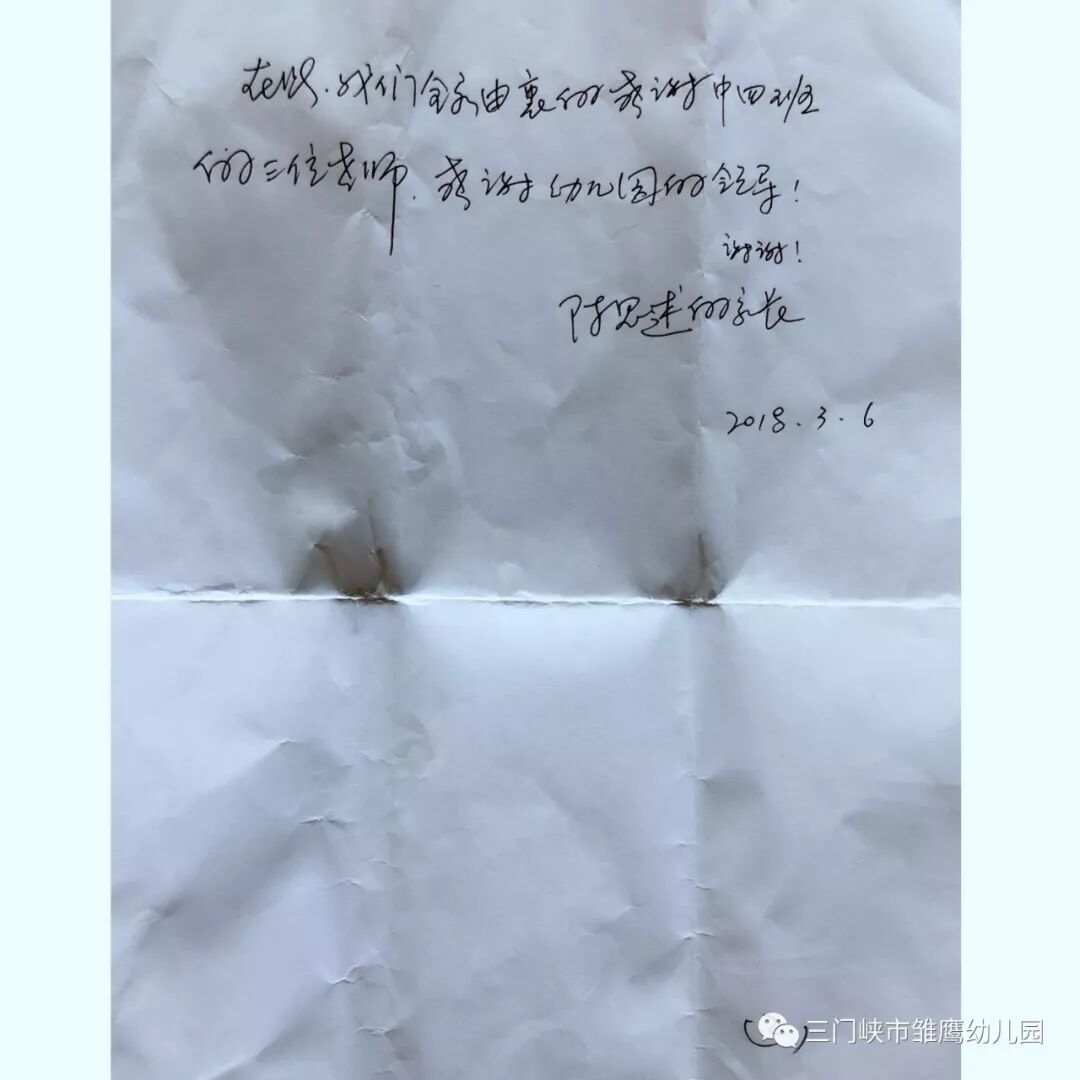 在此,我们全家由衷的感谢中四班
的三位老师.感谢幼儿园的领导!
谢谢!
陈思述的家长
2018.3.6
三门峡市雏鹰幼儿园